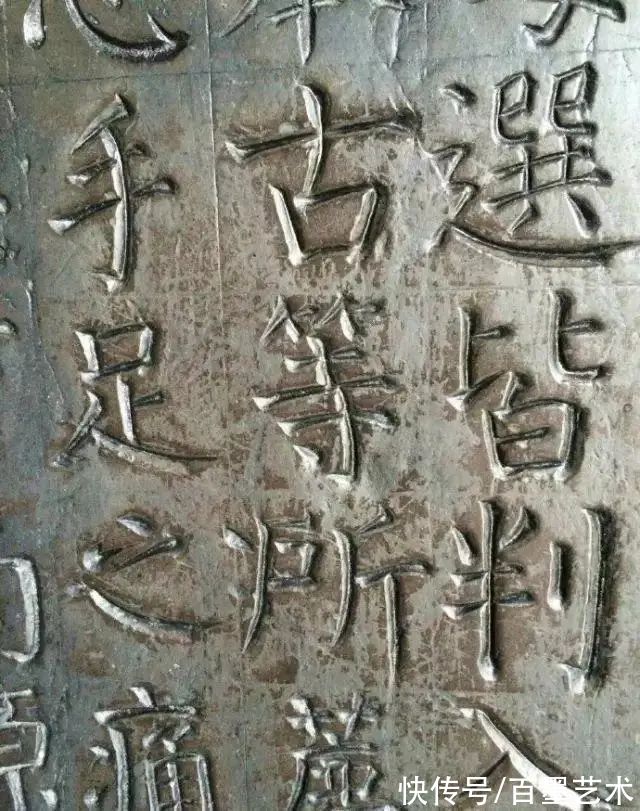 選皆判入
古等所
手足之痛
快传号/百墨艺术